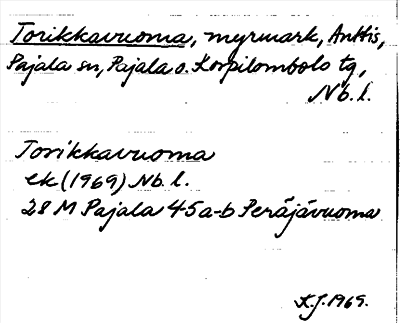 Torikkavuoma, myrmark, Anttis,
Pajala sn, Pajala o. Korpilombolo tg,
Nb. l.
Torikkavuoma
ek (1969) Nb. l.
28 M Pajala 45a-b Peräjävuoma
K.J. 1969.